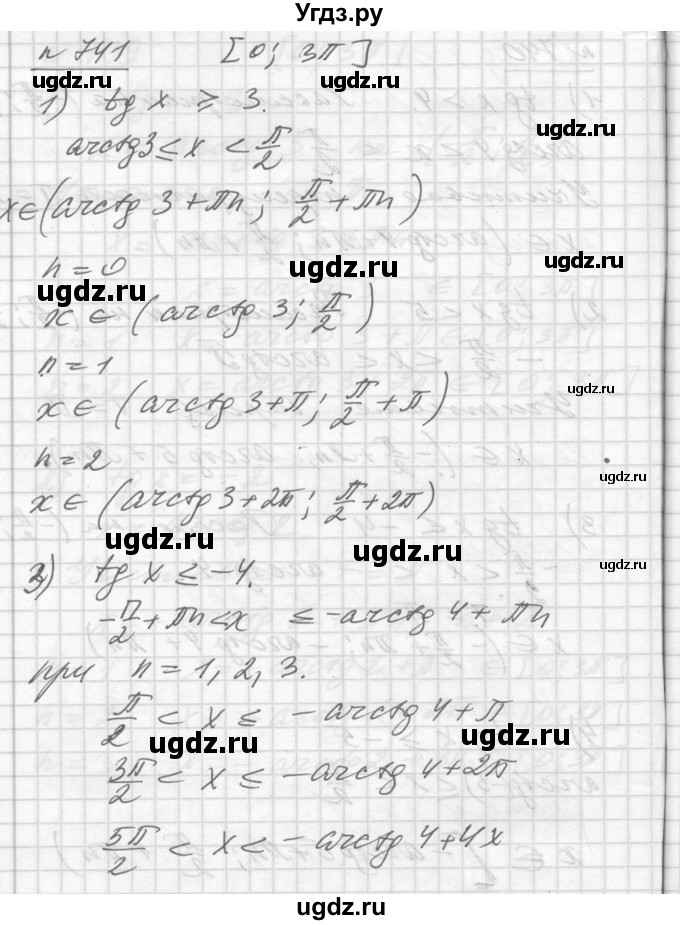 Угдз.ру
n 741 [0; 3π]
ugdz.ru ugdz.ru ugdz.ru
1) tg x ≥ 3.
arctg3 ≤ x < π/2
x∈(arctg 3 + πn; π/2 + πn)
n = 0
ugdz.ru ugdz.ru
ugdz.ru
x ∈ (arctg 3; π/2)
n = 1
ugdz.ru
x ∈ (arctg 3+π; π/2 + π)
n = 2
ugdz.ru
x ∈ (arctg 3+2π; π/2+2π)
ugdz.ru ugdz.ru
3) tg x ≤ -4.
ugdz.ru
-π/2 + πn < x ≤ -arctg 4 + πn
при n = 1, 2, 3.
π/2 < x ≤ -arctg 4 + π
ugdz.ru ugdz.ru
3π/2 < x ≤ -arctg 4+2π
5π/2 < x < -arctg 4+4x
ugdz.ru
ugdz.ru